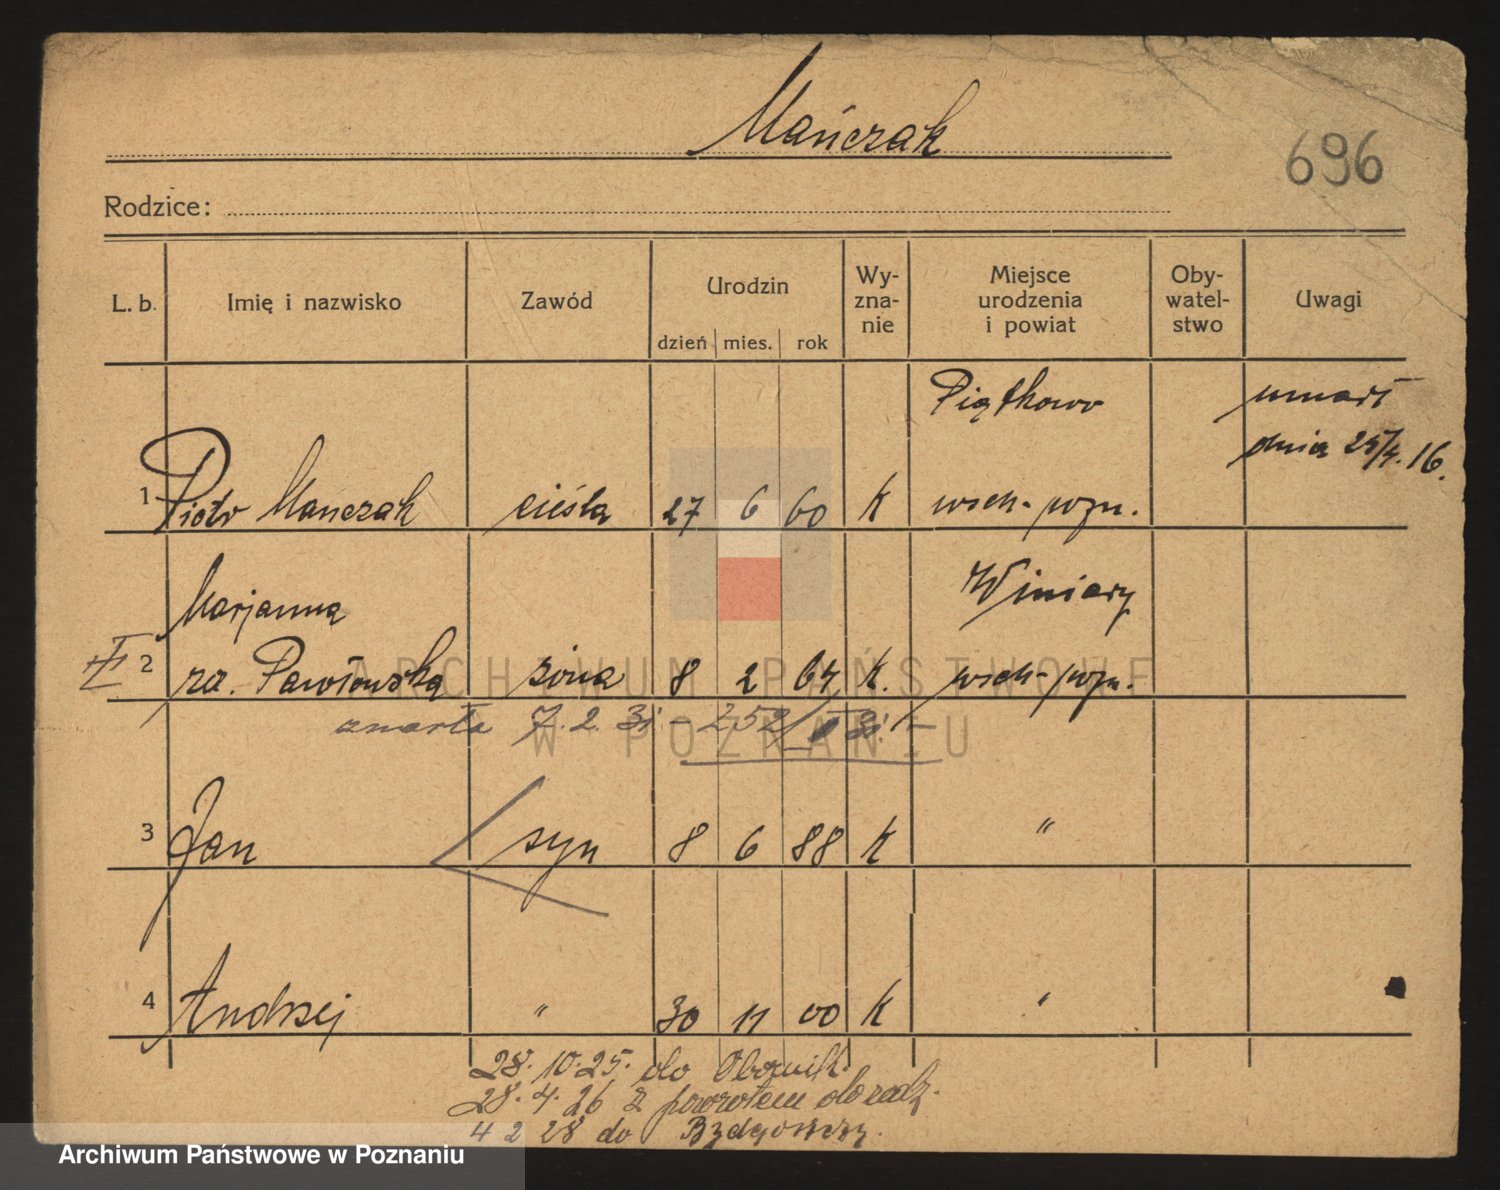 Mańczak
696
Rodzice:
L. b. Imię i nazwisko Zawód Urodzin dzień mies. rok Wy-zna-nie Miejsce urodzenia i powiat Oby-watel-stwo Uwagi
Piątkowo umarł
dnia 25/4. 16.
1 Piotr Mańczak cieśla 27 6 60 K wsch-pozn.
Marjanna Winiary
2 za. Pawłowska żona 8 2 64 K. wsch-pozn.
zmarła 7. 2. 31 - 252
3 Jan syn 8 6 88 K "
4 Andrzej " 30 11 00 K "
28. 10. 25. do Obornik
28. 4. 26 z powrotem do rodz.
4 2 28 do Bydgoszczy.
ARCHIWUM PAŃSTWOWE
W POZNANIU
Archiwum Państwowe w Poznaniu